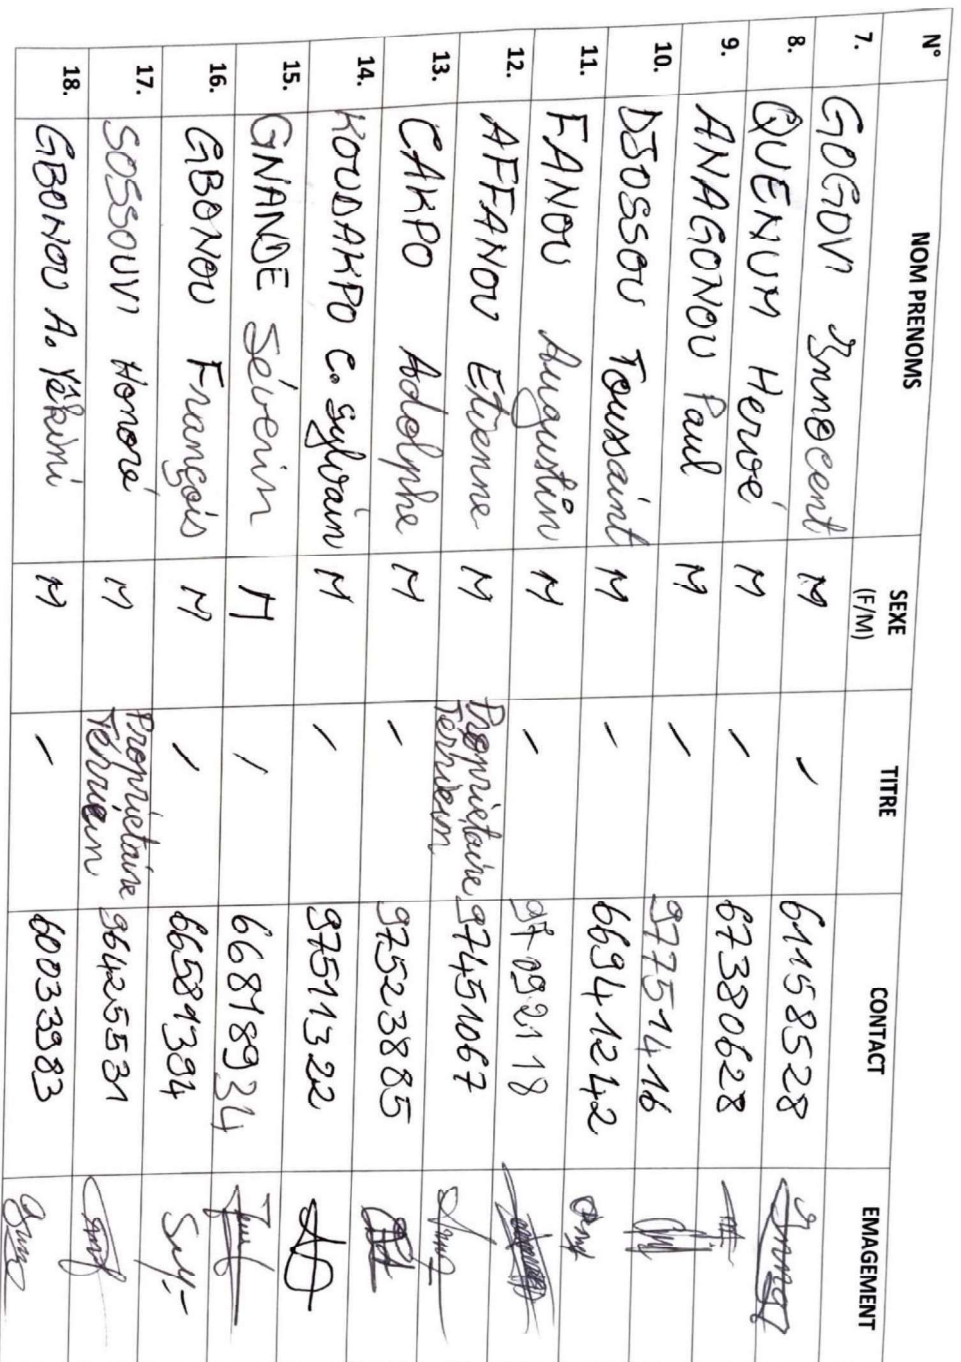 N° NOM PRENOMS SEXE (F/M) TITRE CONTACT EMAGEMENT
7. GOGOVI Innocent M / 61158528
8. QUENUM Hervé M / 67380628
9. ANAGONOU Paul M / 97751416
10. DJOSSOU Toussaint M / 66941242
11. FANOU Augustin M / 97092118
12. AFFANOU Etienne M Propriétaire Terrien 97451067
13. CAKPO Adolphe M / 97523885
14. KOUDAKPO C. Sylvain M / 97511322
15. GNANDE Séverin M / 66818934
16. GBONOU François M / 66581394
17. SOSSOUVI Honoré M Propriétaire Terrien 96425531
18. GBONOU A. M / 60033983